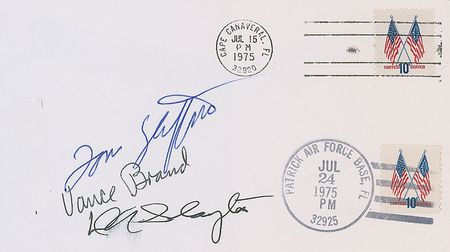 CAPE CANAVERAL, FL
JUL 15
PM
1975
32920
UNITED STATES
10¢
Tom Stafford
Vance Brand
DK Slayton
PATRICK AIR FORCE BASE, FL
JUL
24
1975
PM
32925
UNITED STATES
10¢